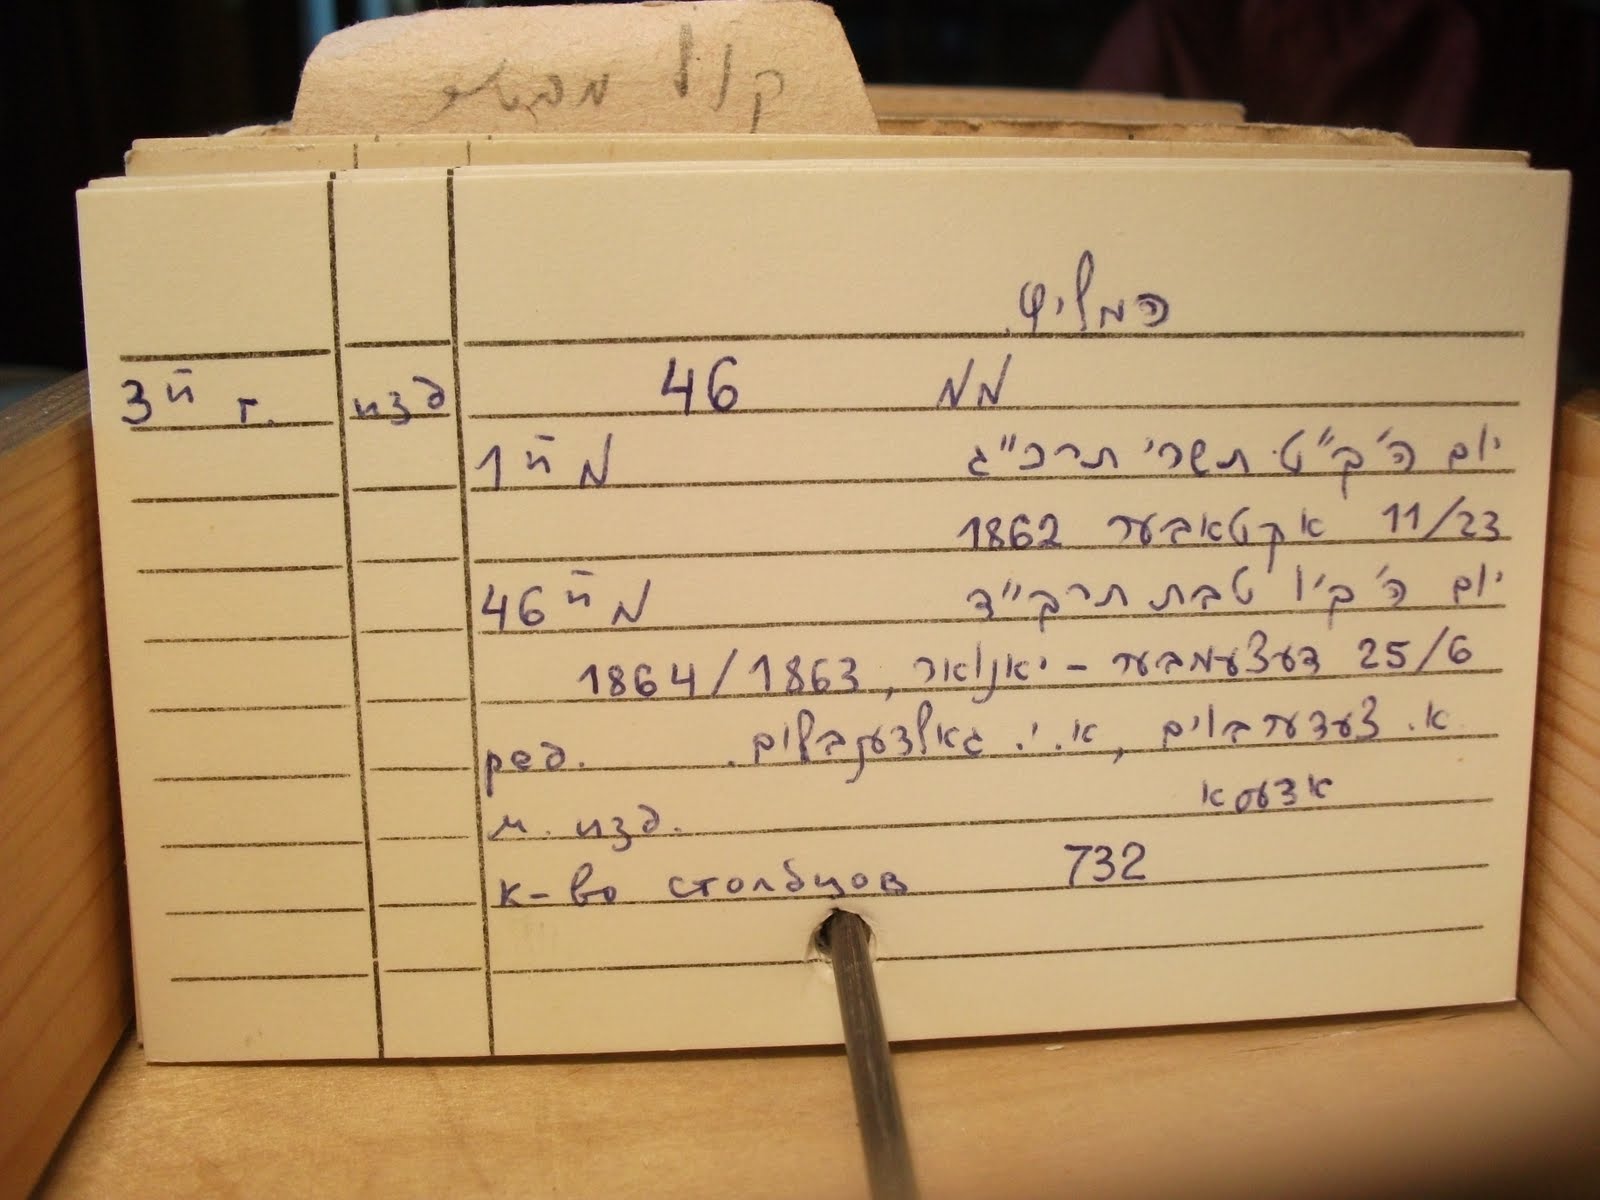 קול מבשר
המליץ
3й г. изд 46 ממ
1й מ יום ה׳ כ״ט תשרי תרכ״ג
11/23 אקטאבער 1862
46й מ יום ה׳ כ׳ו טבת תרכ״ד
25/6 דעצעמבער - יאנואר, 1864/1863
ред. א. צעדערבוים, א. י. גאלדענבלום.
м. изд. אדעסא
к-во столбцов 732